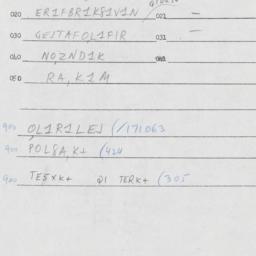 020 ER1FBR1K81V1N 021 —
030 GEJTAFOL1FIR 031 —
040 NOZND1K 041
050 RA, K1M
900 OL1R1LEJ (/171063
901 POLSA, K+ (424
900 TE5XK+ Q1 TERK+ (305